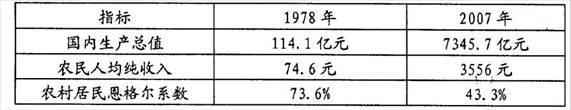 指标 1978年 2007年
国内生产总值 114.1亿元 7345.7亿元
农民人均纯收入 74.6元 3556元
农村居民恩格尔系数 73.6% 43.3%